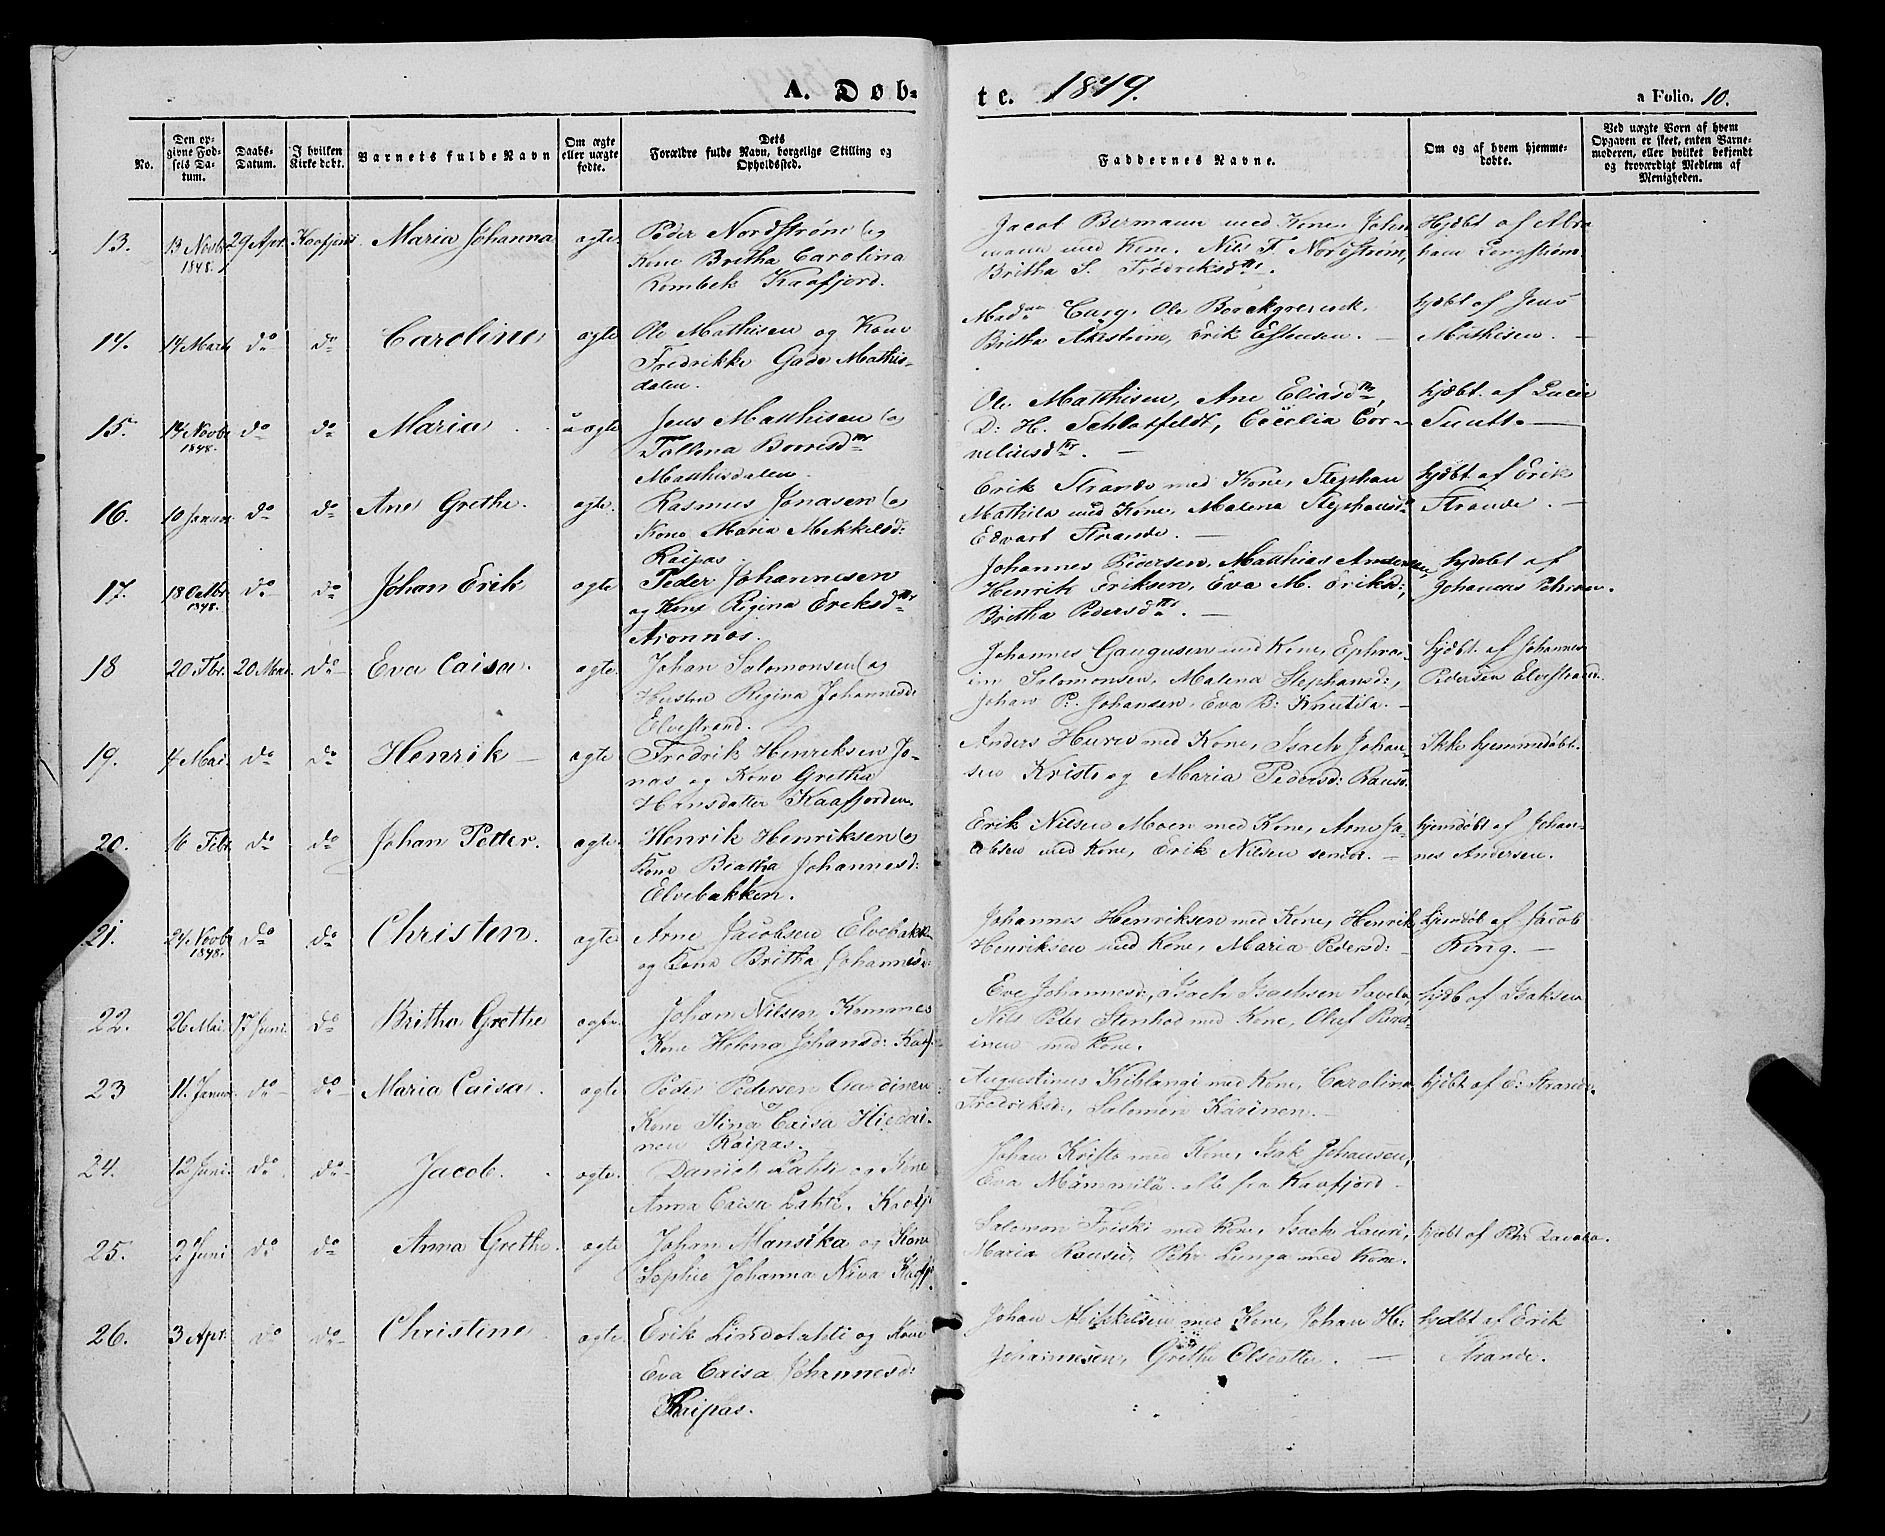 A. Døb-
te. 1849.
a Folio. 10.
No.
Den op-
givne Fød-
sels Da-
tum.
Daabs-
Datum.
I hvilken
Kirke døbt.
Barnets fulde Navn
Om ægte
eller uægte
fødte.
Dets
Forældre fulde Navn, borgelige Stilling og
Opholdssted.
Faddernes Navne.
Om og af hvem hjemme-
døbte.
Ved uægte Børn af hvem
Opgaven er skeet, enten Barne-
moderen, eller hvilket bekjendt
og troværdigt Medlem af
Menigheden.
13. 13 Novbr 1848. 29 Apr. Kaafjord Maria Johanna ægte
Peder Nordstrøm og
Kone Britha Carolina
Rombek Kaafjord.
Jacob Bermann med Kone, Johen
mann med Kone. Nils F. Nordstrøm,
Britha S. Fredriksdtr.
Hjdbt af Abra
ham
14. 14 Marts do do Caroline ægte
Ole Mathisen og Kone
Fredrikke Gade Mathis-
dalen.
Madm Ole Borchgrevink.
Britha Akestrøm, Erik Estensen. —
hjdbt af Jens
Mathisen. —
15. 14 Novbr 1848. do do Maria uægte
Jens Matthisen og
Borresdtr
Matthisdalen.
Ole Matthisen, Ane Eliasdtr,
D: H. Schlotfeldt, Cecelia Cor-
neliusdtr. —
hjdbt. af
16. 10 Januar. do do Ane Grethe. ægte.
Rasmus Jonasen og
Kone Maria Mikkelsd:
Raipas
Erik Strande med Kone, Stephan
Mathila med Kone, Malena Stephansd
Edvart Strande. —
hjdbt af Erik
Strande. —
17. 18 Octbr. 1848. do do Johan Erik ægte
Peder Johannesen
og Kone Regina Ereksdtr
Aronnes.
Johannes Pedersen, Matthias Andersen,
Henrik Eriksen, Eva M. Eriksd:,
Britha Pedersdtr. —
hjdbt af
Johannes Pehrsen.
18 20 Fbr. 20 Mai. do Eva Caisa. ægte.
Johan Salomonsen og
Hustru Regina Johannesd
Elvestrand.
Johannes Gaugusen med Kone, Ephra-
im Salomonsen, Malena Stephansd:,
Johan P. Johansen, Eva B: Knutila. —
hjdbt. af Johannes
Pedersen Elvestrand.
19. 4 Mai. do do Henrik — ægte
Fredrik Henriksen Jo-
nas og Kone Gretha
Hansdatter Kaafjorden.
Anders Huru med Kone, Isach Johan-
sen Kriste og Maria Pedersd: Rausi.
Ikke hjemmedøbt.
20. 16 Febr. do do Johan Petter. ægte.
Henrik Henriksen og
Kone Beatha Johannesd:
Elvebakken.
Erik Nilsen Moen med Kone, Arne Ja-
cobsen med Kone, Erik Nilsen senior. —
hjemdøbt af Johan-
nes Andersen.
21. 24 Novbr 1848. do do Christen. ægte
Arne Jacobsen Elvebakken
og Kone Britha Johannesd:
Johannes Henriksen med Kone, Henrik
Henriksen med Kone, Maria Pedersd:
hjemdøbt af Jacob
Ring. —
22. 26 Mai. 17 Juni. do Britha Grethe ægte.
Johan Nilsen Kommes
Kone Helena Johansd: Kaaf.
Eva Johannesd:, Isach Isachsen Lavela,
Nils Peter Stenhod med Kone, Oluf Pura-
inen med Kone.
hjdb af Isaksen
23 11. Januar do do Maria Caisa. ægte
Peder Pedersen Gardinen
Kone Stina Caisa Hietai-
nen Raipas.
Augustinus Kihlangi med Kone, Carolina
Fredriksd:, Salomon Karinen. —
hjdbt af E: Strande.
24. 12 Juni. do do Jacob. ægte.
Daniel Lahti og Kone
Anna Caisa Lahti. Kaafj.
Johan Kristo med Kone, Isak Johansen,
Eva Mämmilä. alle fra Kaafjord —
25. 2 Juni do do Anna Grethe. ægte
Johan Mansika og Kone
Sophie Johanna Niva Kaafj.
Salomon Friski med Kone, Isach Lauri,
Maria Rausi, Pehr Lunga med Kone.
hjdbt af Pehr Lavala.
26. 3 Apr: do do Christine ægte
Erik Lindolahti og Kone
Eva Caisa Johannesd:
Raipas.
Johan Mikkelsen med Kone, Johan H:
Johannesen, Grethe Olsdatter. —
hjdbt af Erik
Strande.